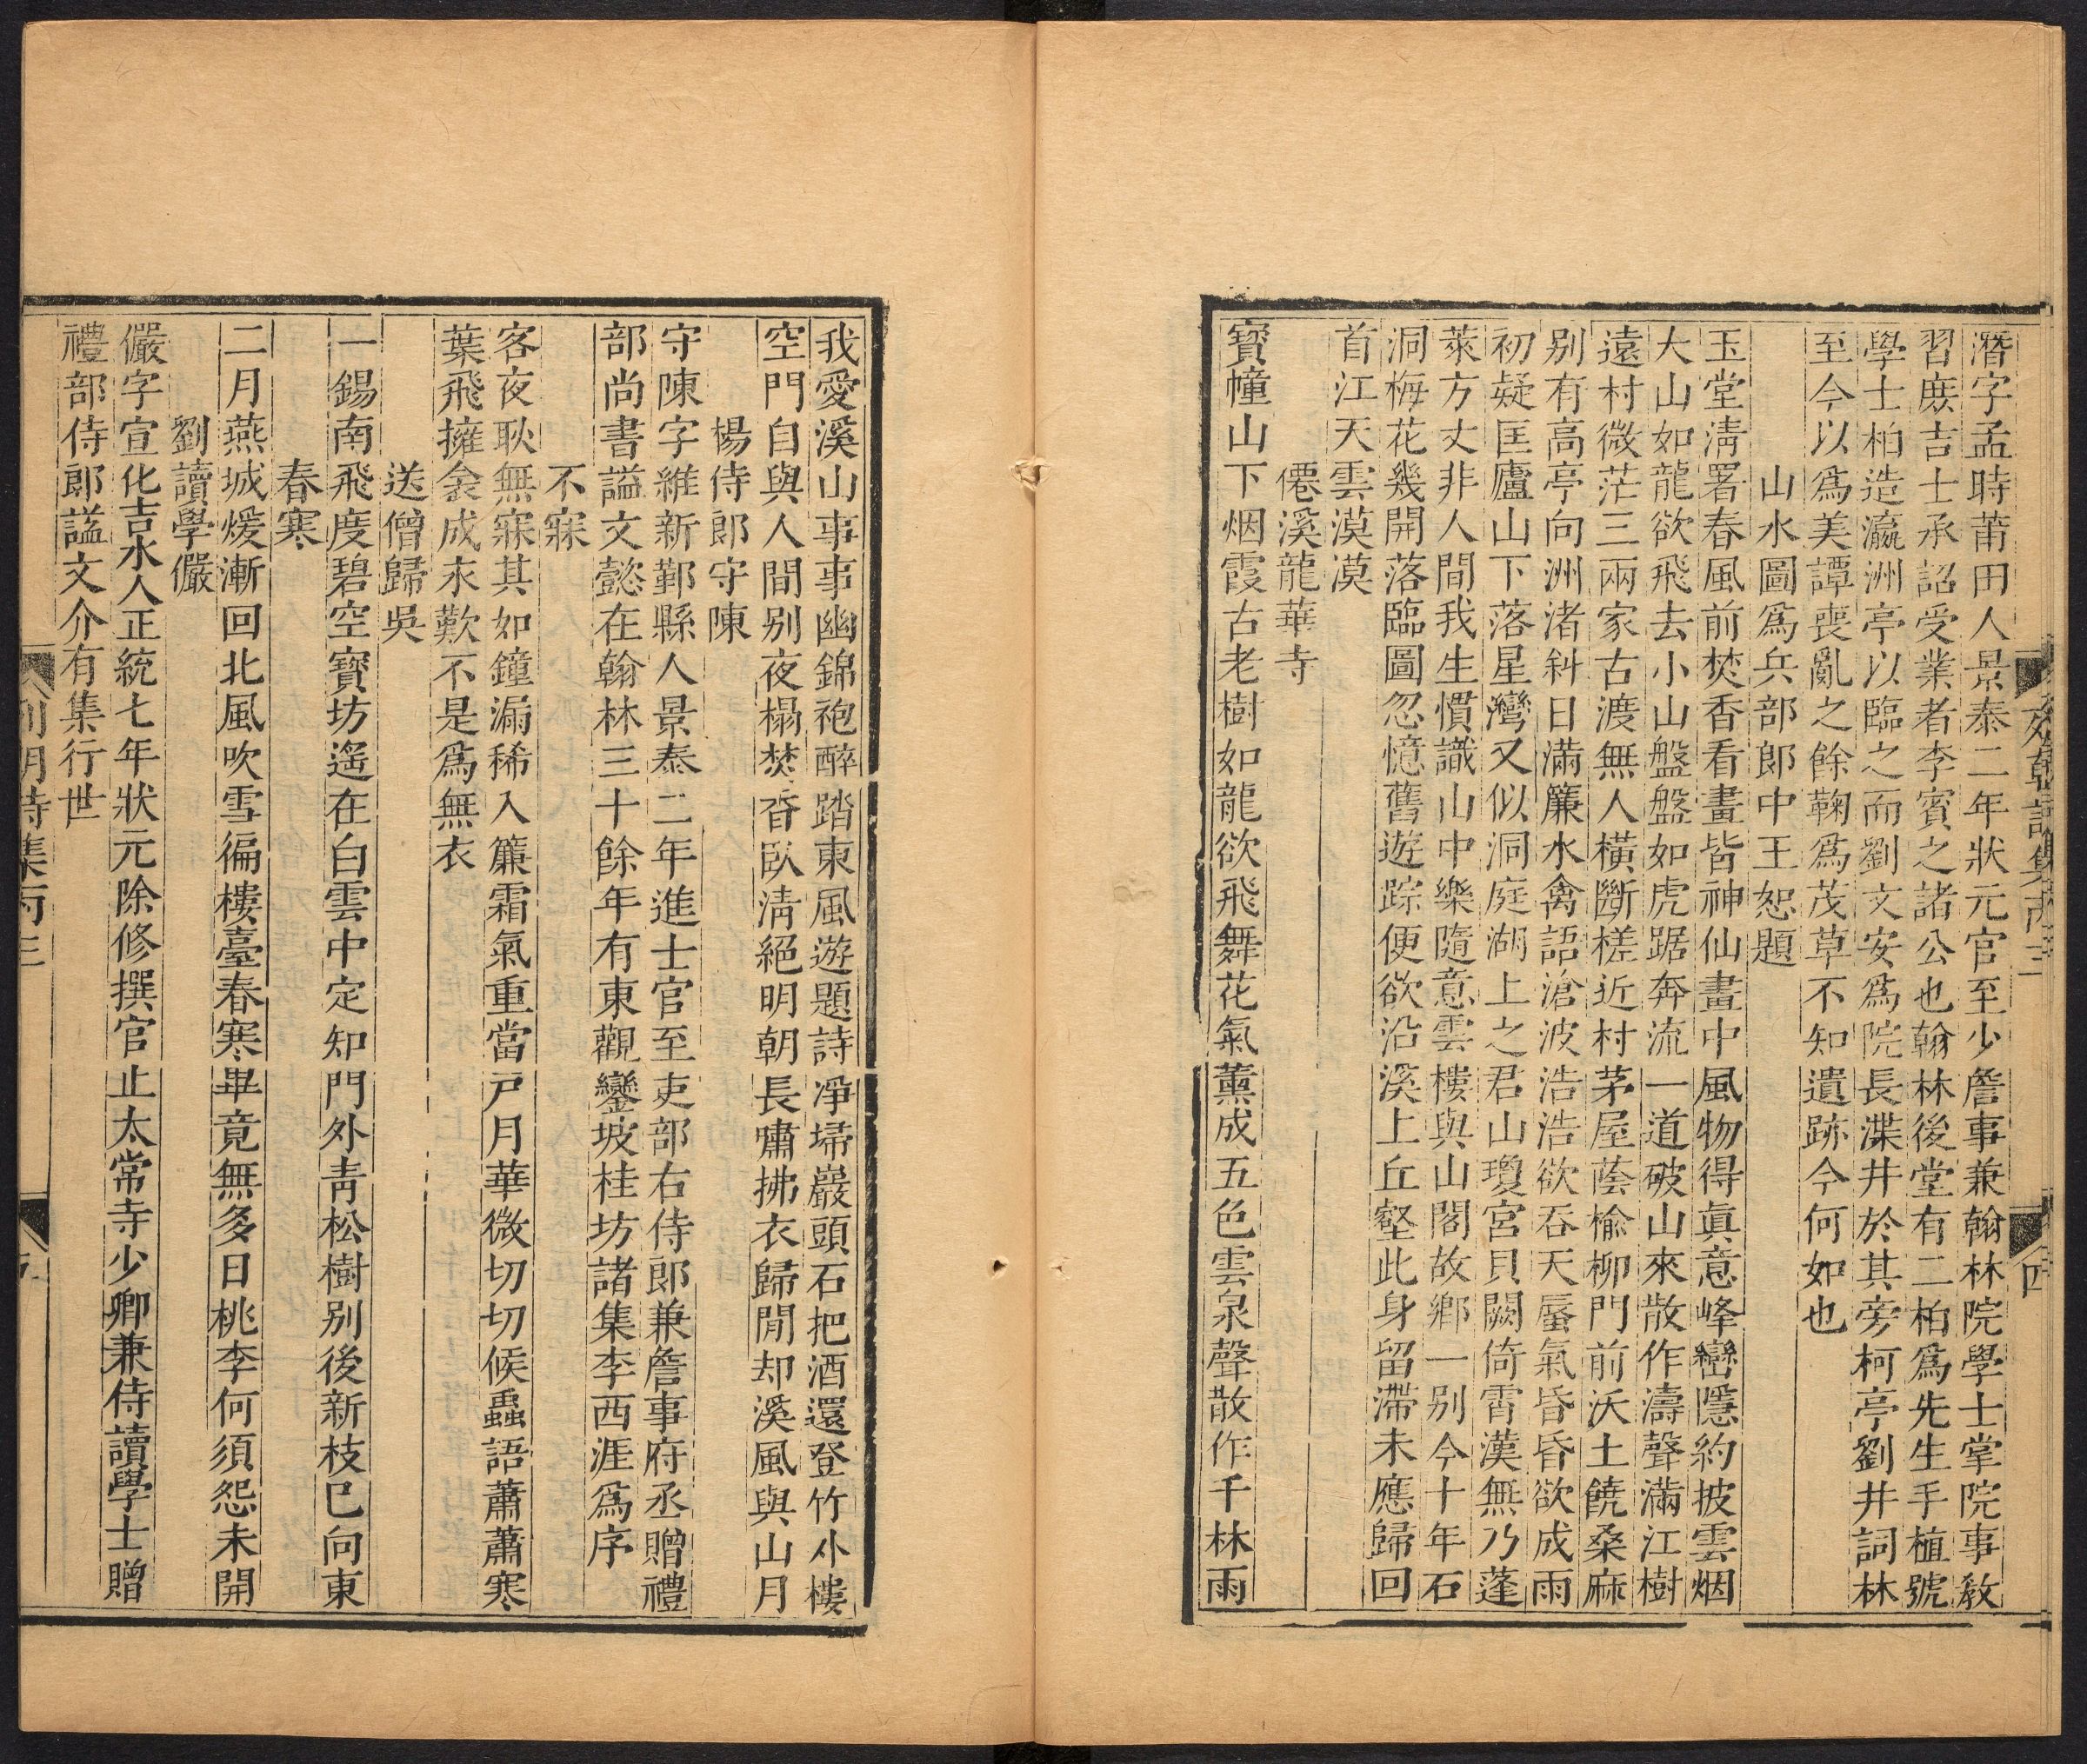 潛字孟時莆田人景泰二年狀元官至少詹事兼翰林院學士掌院事敎
習庶吉士承詔受業者李賓之諸公也翰林後堂有二柏爲先生手植號
學士柏造瀛洲亭以臨之而劉文安爲院長渫井於其旁柯亭劉井詞林
至今以爲美譚喪亂之餘鞠爲茂草不知遺跡今何如也
山水圖爲兵部郞中王恕題
玉堂淸署春風前焚香看畫皆神仙畫中風物得眞意峰巒隱約披雲烟
大山如龍欲飛去小山盤盤如虎踞奔流一道破山來散作濤聲滿江樹
遠村微茫三兩家古渡無人橫斷槎近村茅屋蔭榆柳門前沃土饒桑麻
别有高亭向洲渚斜日滿簾水禽語滄波浩浩欲吞天蜃氣昏昏欲成雨
初疑匡廬山下落星灣又似洞庭湖上之君山瓊宮貝闕倚霄漢無乃蓬
萊方丈非人間我生慣識山中樂隨意雲樓與山閣故鄕一别今十年石
洞梅花幾開落臨圖忽憶舊遊踪便欲沿溪上丘壑此身留滯未應歸回
首江天雲漠漠
僊溪龍華寺
寳幢山下烟霞古老樹如龍欲飛舞花氣薰成五色雲泉聲散作千林雨
我愛溪山事事幽錦袍醉踏東風遊題詩淨埽巖頭石把酒還登竹外樓
空門自與人間别夜榻焚香臥淸絕明朝長嘯拂衣歸閒却溪風與山月
楊侍郞守陳
守陳字維新鄞縣人景泰二年進士官至吏部右侍郞兼詹事府丞贈禮
部尚書謚文懿在翰林三十餘年有東觀鑾坡桂坊諸集李西涯爲序
不寐
客夜耿無寐其如鐘漏稀入簾霜氣重當戸月華微切切候蟲語蕭蕭寒
葉飛擁衾成永歎不是爲無衣
送僧歸吳
一錫南飛度碧空寳坊遙在白雲中定知門外靑松樹别後新枝已向東
春寒
二月燕城煖漸回北風吹雪徧樓臺春寒畢竟無多日桃李何須怨未開
劉讀學儼
儼字宣化吉水人正統七年狀元除修撰官止太常寺少卿兼侍讀學士贈
禮部侍郞謚文介有集行世